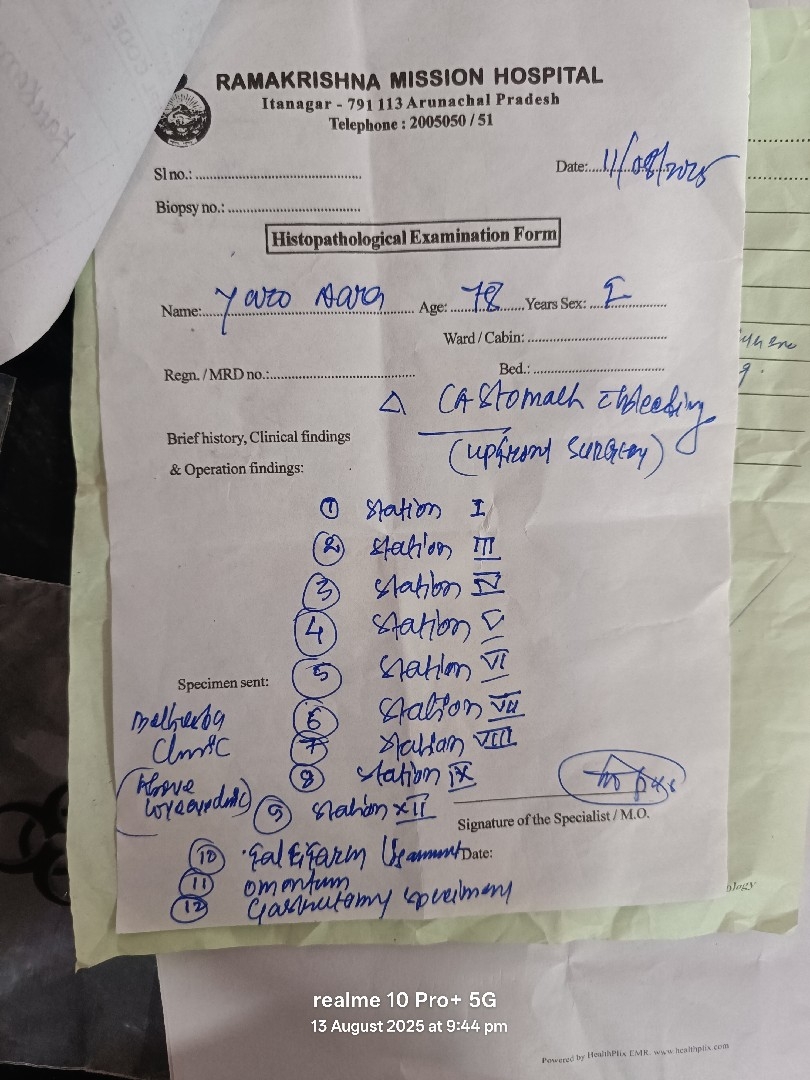 RAMAKRISHNA MISSION HOSPITAL
Itanagar - 791 113 Arunachal Pradesh
Telephone : 2005050 / 51
Sl no.: ..........
Date: 11/08/2025
Biopsy no.: ..........
Histopathological Examination Form
Name: Yaro Age: 78 Years Sex:
Ward / Cabin: ..........
Regn. / MRD no.: .......... Bed.: ..........
△ CA Stomach bleeding
Brief history, Clinical findings
(upfront surgery)
& Operation findings:
① station I
② station III
③ station IV
④ station V
⑤ station VI
Specimen sent:
⑥ station VII
Clinic
⑦ station VIII
⑧ station IX
(Above
⑨ station XII
Signature of the Specialist / M.O.
⑩ Falciform Date:
⑪ omentum
⑫ Gastrectomy specimen
ology
realme 10 Pro+ 5G
13 August 2025 at 9:44 pm
Powered by HealthPlix EMR. www.healthplix.com